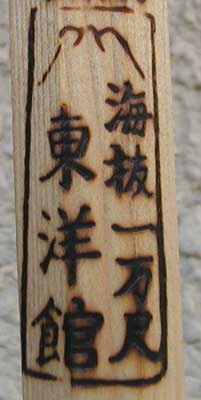 海抜一万尺
東洋館